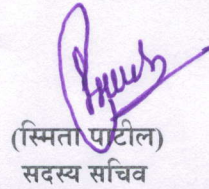 (स्मिता पाटील)
सदस्य सचिव